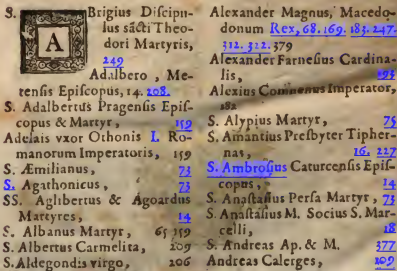 S. ABrigius Discipu-
lus sācti Theo-
dori Martyris,
249
Adalbero, Me-
tensis Episcopus, 14. 208.
S. Adalbertus Pragensis Epis-
copus & Martyr, 159
Adelais vxor Othonis I. Ro-
manorum Imperatoris, 159
S. Æmilianus, 73
S. Agathonicus, 73
SS. Aglibertus & Agoardus
Martyres, 14
S. Albanus Martyr, 65 359
S. Albertus Carmelita, 209
S. Aldegondis virgo, 206
Alexander Magnus, Macedo-
donum Rex, 68. 169. 183. 247.
312. 322. 379
Alexander Farnesius Cardina-
lis, 193
Alexius Comnenus Imperator,
182
S. Alypius Martyr, 75
S. Amantius Presbyter Tipher-
nas, 16. 227
S. Ambrosius Caturcensis Epis-
copus, 14
S. Anastasius Persa Martyr, 73
S. Anastasius M. Socius S. Mar-
celli, 18
S. Andreas Ap. & M. 377
Andreas Calerges, 209